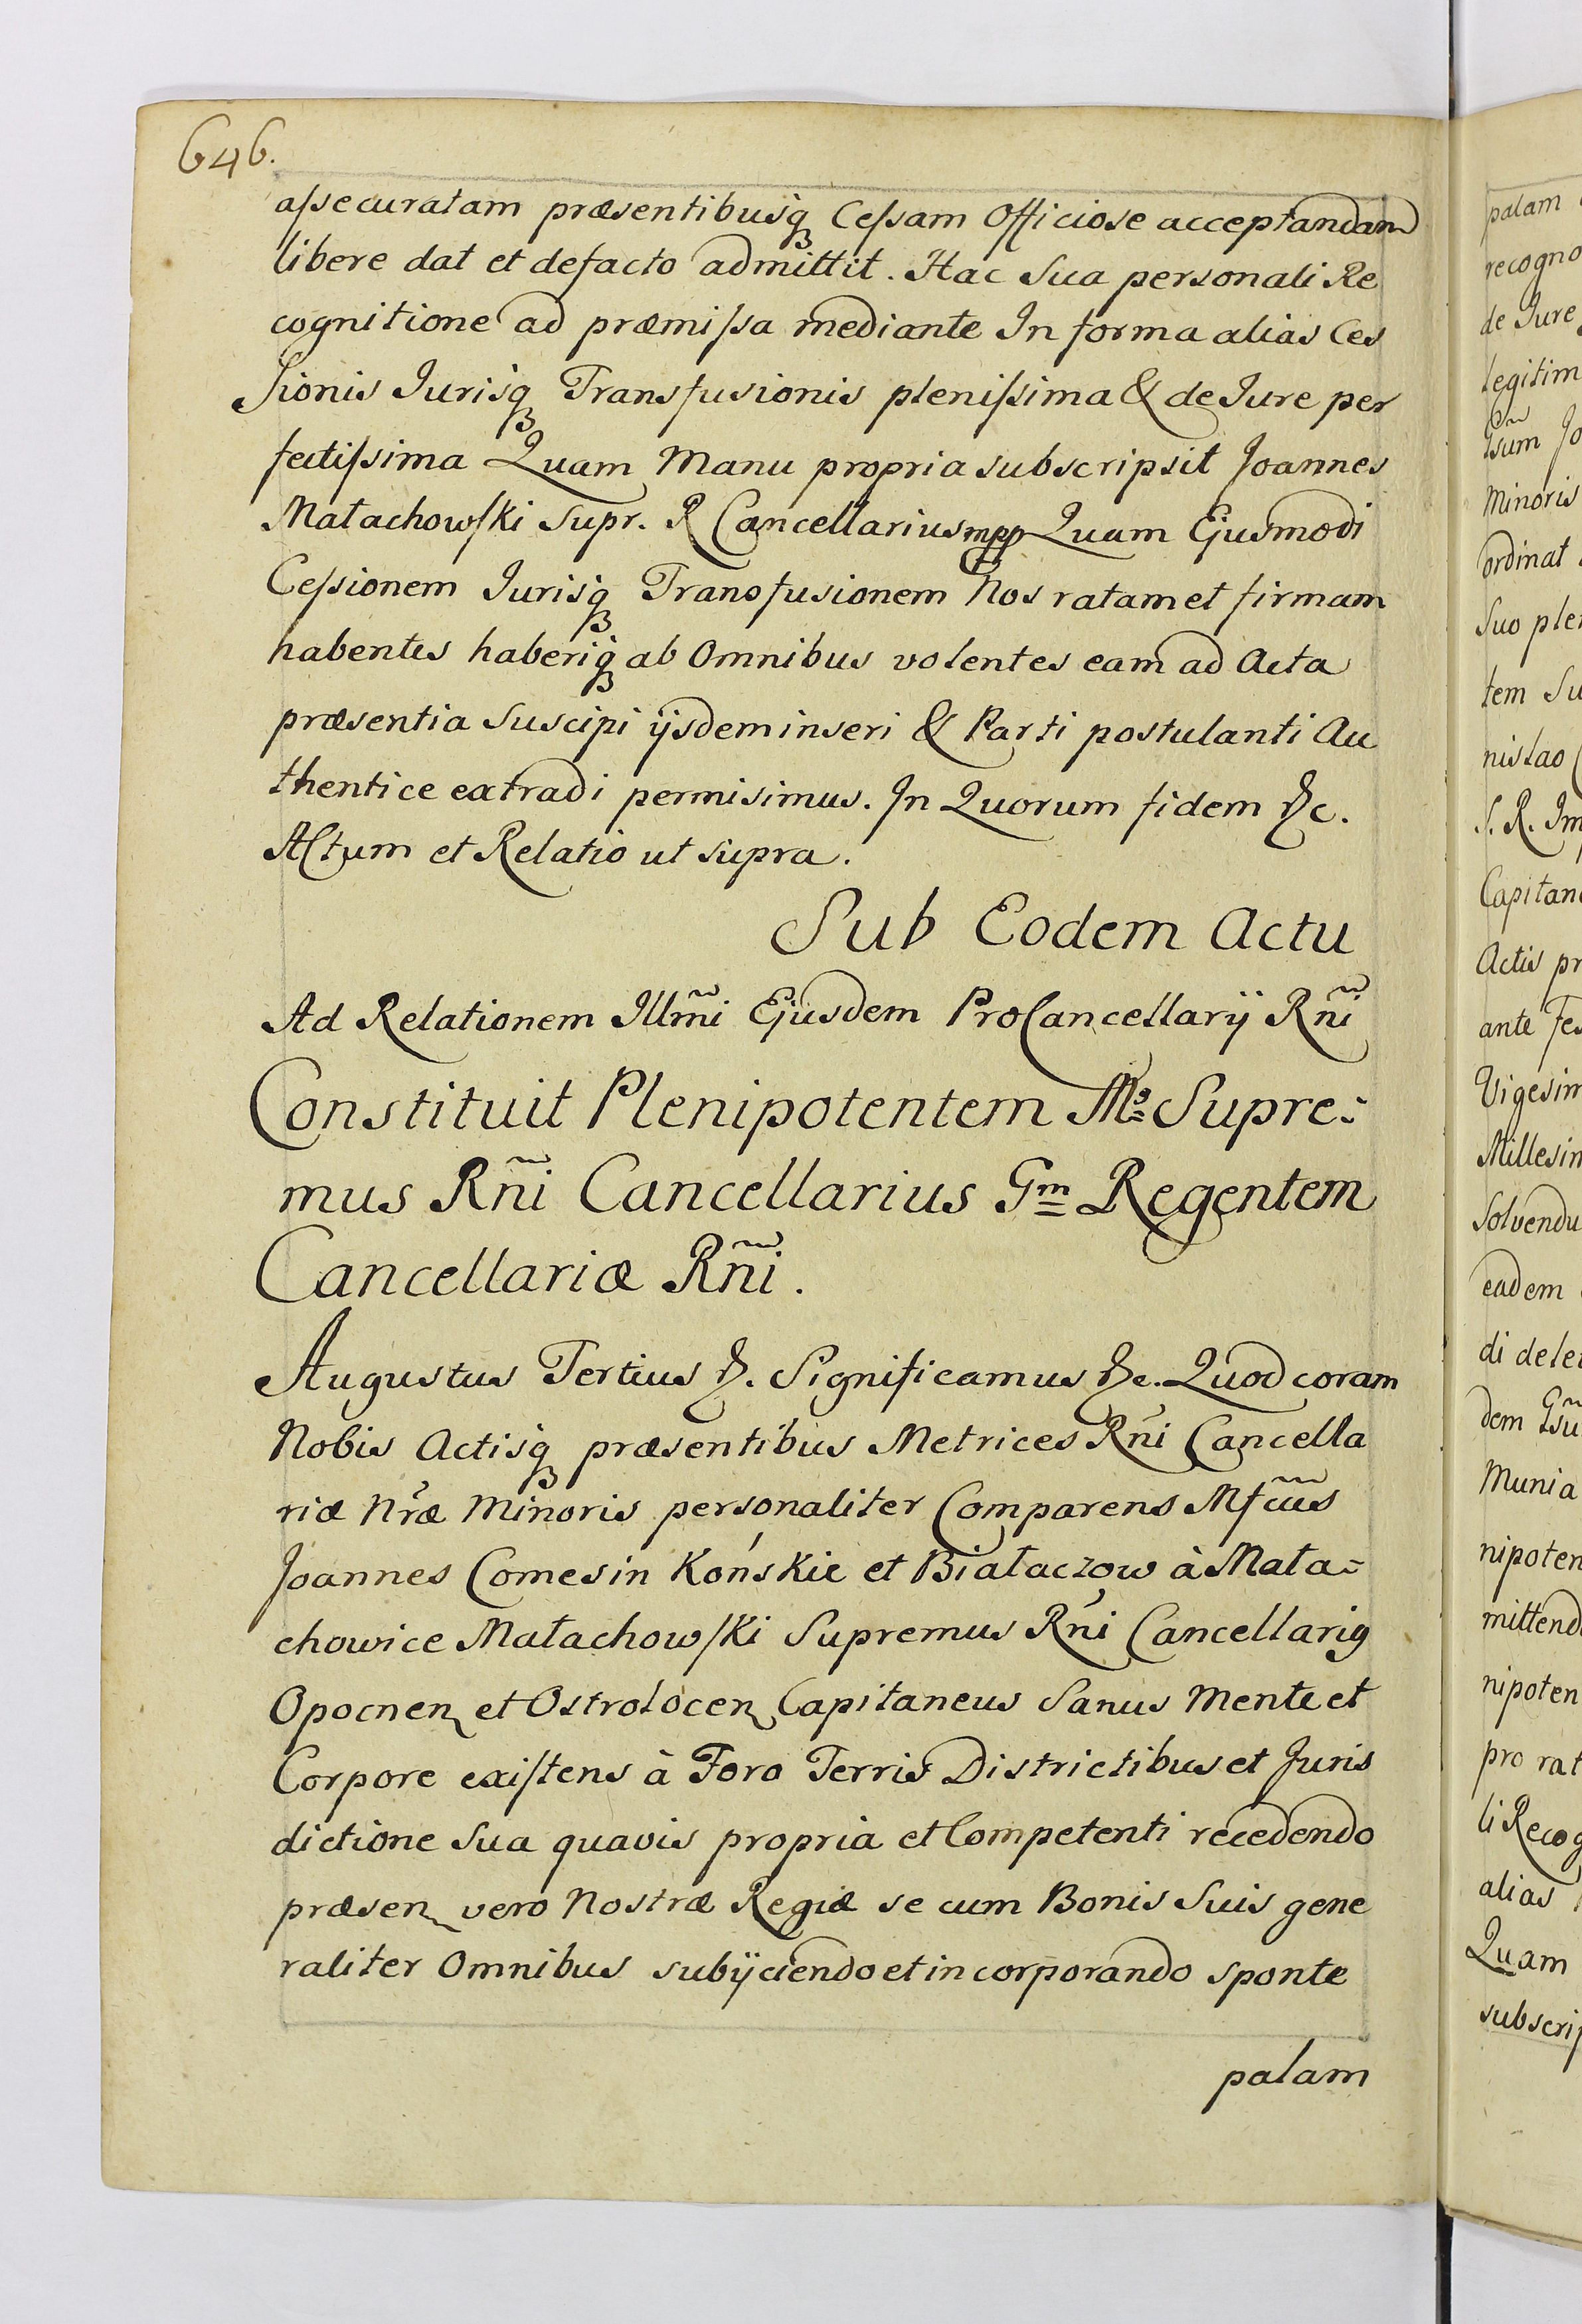 646.
aſsecuratam præsentibusq́ꝫ Ceſsam Officiose acceptandam
libere dat et defacto admittit. Hac Sua personali Re
cognitione ad præmiſsa mediante In forma alias Ces
sionis Jurisq́ꝫ Transfusionis pleniſsima & de Jure per
fectiſsima Quam Manu propria subscripsit Joannes
Małachowſki Supr. R Cancellarius mpp Quam Ejusmodi
Ceſsionem Jurisq́ꝫ Transfusionem Nos ratam et firmam
habentes haberiq́ꝫ ab Omnibus volentes eam ad Acta
præsentia Suscipi ijsdem inseri & Parti postulanti Au
thentice extradi permisimus. In Quorum fidem &c.
Actum et Relatio ut supra.
Sub Eodem Actu
Ad Relationem Illm̃i Ejusdem ProCancellarij Rñi
Constituit Plenipotentem Ms Supre=
mus Rñi Cancellarius Gm Regentem
Cancellariæ Rñi.
Augustus Tertius &. Significamus &c. Quod coram
Nobis Actisq́ꝫ præsentibus Metrices Rñi Cancella
riæ Nr̃æ Minoris personaliter Comparens Mfcũs
Joannes Comes in Końskie et Białaczow à Mała=
chowice Małachowſki Supremus Rñi Cancellariꝰ
Opocnen et Ostrołocen Capitaneus Sanus Mente et
Corpore exiſtens à Foro Terris Districtibus et Juris
dictione Sua quavis propria et Competenti recedendo
præsen vero Nostræ Regiæ se cum Bonis Suis gene
raliter Omnibus subijciendo et incorporando sponte
palam
palam
recogno
de Jure
legitim
Minoris
ordinat
Suo ple
tem Su
nislao
S. R. Im
Capitan
Actis pr
ante Fe
Vigesim
Millesim
Solvendu
eadem
di dele
dem
Munia
nipoten
mittend
nipoten
pro rat
li Recog
alias
Quam
subscrip